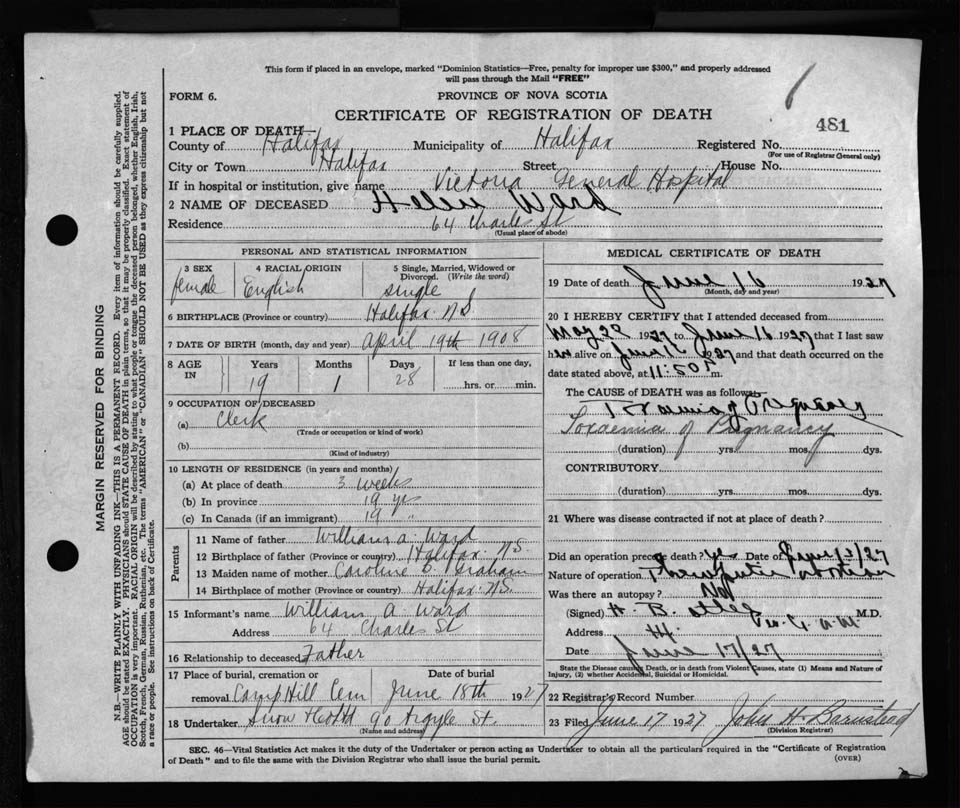 This form if placed in an envelope, marked "Dominion Statistics—Free, penalty for improper use $300," and properly addressed
will pass through the Mail "FREE"
FORM 6.
PROVINCE OF NOVA SCOTIA
CERTIFICATE OF REGISTRATION OF DEATH
481
1 PLACE OF DEATH—
County of Halifax Municipality of Halifax Registered No.
(For use of Registrar General only)
City or Town Halifax Street House No.
If in hospital or institution, give name Victoria General Hospital
2 NAME OF DECEASED Helen Ward
Residence 64 Charles St
(Usual place of abode)
PERSONAL AND STATISTICAL INFORMATION
3 SEX 4 RACIAL ORIGIN 5 Single, Married, Widowed or Divorced. (Write the word)
female English single
6 BIRTHPLACE (Province or country) Halifax N.S.
7 DATE OF BIRTH (month, day and year) April 19th 1908
8 AGE IN Years Months Days If less than one day,
19 1 28 hrs. or min.
9 OCCUPATION OF DECEASED
(a) Clerk
(Trade or occupation or kind of work)
(b)
(Kind of industry)
10 LENGTH OF RESIDENCE (in years and months)
(a) At place of death 3 weeks
(b) In province 19 yrs
(c) In Canada (if an immigrant) 19 "
Parents
11 Name of father William A. Ward
12 Birthplace of father (Province or country) Halifax N.S.
13 Maiden name of mother Caroline Graham
14 Birthplace of mother (Province or country) Halifax N.S.
15 Informant's name William A Ward
Address 64 Charles St
16 Relationship to deceased Father
17 Place of burial, cremation or removal Date of burial
Camp Hill Cem June 18th 1927
18 Undertaker Snow & Co Ltd 90 Argyle St.
(Name and address)
MEDICAL CERTIFICATE OF DEATH
19 Date of death June 16 1927
(Month, day and year)
20 I HEREBY CERTIFY that I attended deceased from
May 28 1927 to June 16 1927 that I last saw
her alive on June 1927 and that death occurred on the
date stated above, at 11:50 m.
The CAUSE OF DEATH was as follows:
Toxaemia of Pregnancy
Toxaemia of Pregnancy
(duration) yrs. mos. dys.
CONTRIBUTORY
(duration) yrs. mos. dys.
21 Where was disease contracted if not at place of death?
Did an operation precede death? Yes Date of June 27
Nature of operation Therapeutic abortion
Was there an autopsy? No
(Signed) H. B. M.D.
Address Hx.
Date June 17/27
State the Disease causing Death, or in death from Violent Causes, state (1) Means and Nature of
Injury, (2) whether Accidental, Suicidal or Homicidal.
22 Registrar's Record Number
23 Filed June 17 1927 John H Barnstead
(Division Registrar)
SEC. 46—Vital Statistics Act makes it the duty of the Undertaker or person acting as Undertaker to obtain all the particulars required in the "Certificate of Registration
of Death" and to file the same with the Division Registrar who shall issue the burial permit.
(OVER)
MARGIN RESERVED FOR BINDING
N.B.—WRITE PLAINLY WITH UNFADING INK—THIS IS A PERMANENT RECORD. Every item of information should be carefully supplied.
AGE should be stated EXACTLY. PHYSICIANS should STATE CAUSE OF DEATH in plain terms, so that it may be properly classified. Exact statement of
OCCUPATION is very important. RACIAL ORIGIN will be described by stating to what people or tongue the deceased person belonged, whether English, Irish,
Scotch, French, German, Russian, Ruthenian, etc. The terms "AMERICAN" or "CANADIAN" SHOULD NOT BE USED as they express citizenship but not
a race or people. See instructions on back of Certificate.